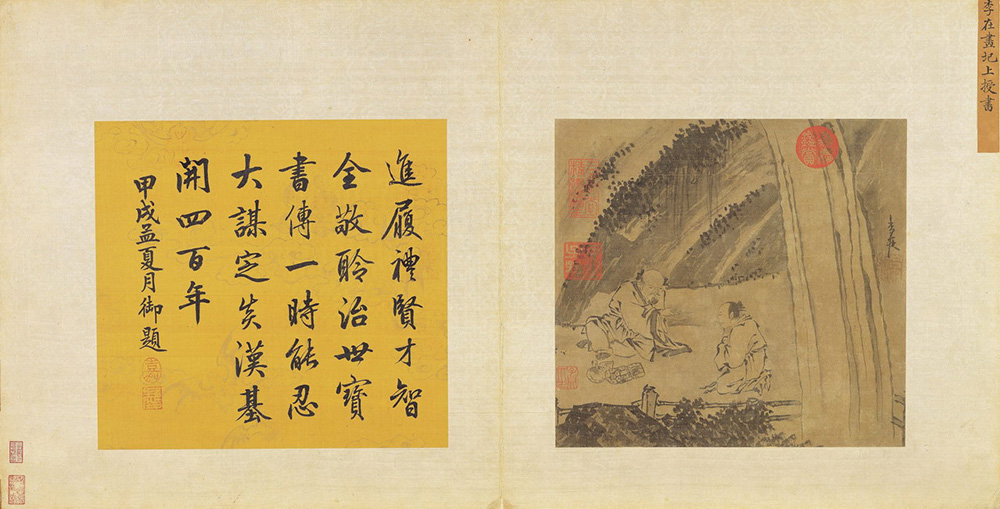 李在畫圯上授書
李在
進履禮賢才智
全敬聆治世寶
書傳一時能忍
大謀定矣漢基
開四百年
甲戌孟夏月御題